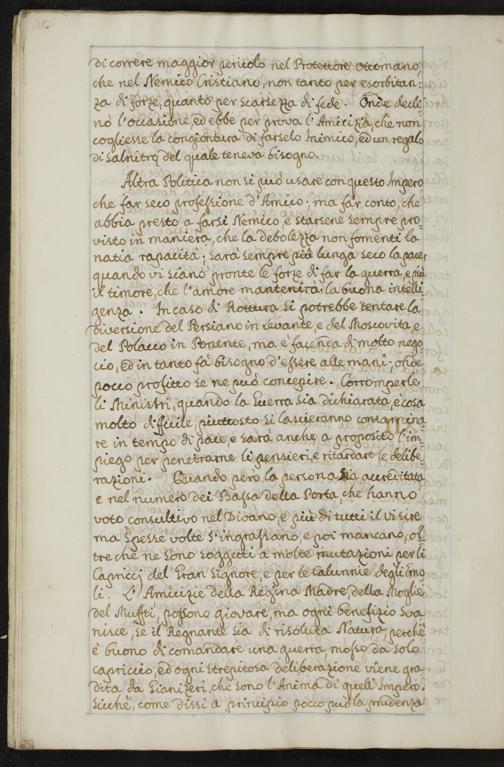 di correre maggior pericolo nel Protettore Ottomano,
che nel Nemico Cristiano, non tanto per esorbitan:
za di forze, quanto per scarsezza di fede. Onde decli
nò l'occasione, ed ebbe per prova l'Amicizia, che non
cogliesse la congiontura di farselo Inimico, ed un regalo
di Salnitro del quale teneva bisogno.
Altra Politica non si può usare con questo Impero
che far seco professione d'Amico, ma far conto, che
abbia presto a farsi Nemico, e starsene sempre pro
visto in maniera, che la debolezza non fomenti la
natia rapacità; sarà sempre più lunga seco la pace,
quando vi siano pronte le forze di far la guerra, e più
il timore, che l'amore mantenirà la buona intelli
genza. In caso di Rottura si potrebbe tentare la
diversione del Persiano in Levante, e del Moscovita, e
del Polacco in Ponente, ma è facenda di molto nego
cio, ed in tanto fà bisogno d'essere alle mani, onde
pocco profitto se ne può concepire. Corromperle
li Ministri, quando la guerra sia dichiarata, è cosa
molto difficile, piuttosto si lascieranno contamina
re in tempo di pace, e sarà anche a proposito l'im
piego per penetrarne li pensieri, e ritardare le delibe
razioni. Quando però la persona sia accreditata
e nel numero dei Bassa della Porta, che hanno
voto consultivo nel Divano, e più di tutti il visire,
ma spesse volte s'ingrassano, e poi mancano, ol
tre che ne sono soggetti a molte mutazioni per li
Capricci del Gran Signore, e per le Calunnie degli Emo
li. L'Amicizie della Regina Madre, della Moglie
del Muffti, possono giovare, ma ogni benefizio sva
nisce, se il Regnante sia di risoluta Natura, perchè
è buono di comandare una guerra, mosso da solo
capriccio, ed ogni strepitosa deliberazione viene gra
dita da Gianizeri, che sono l'Anima di quell'Impero.
Sicchè, come dissi a principio pocco può la prudenza